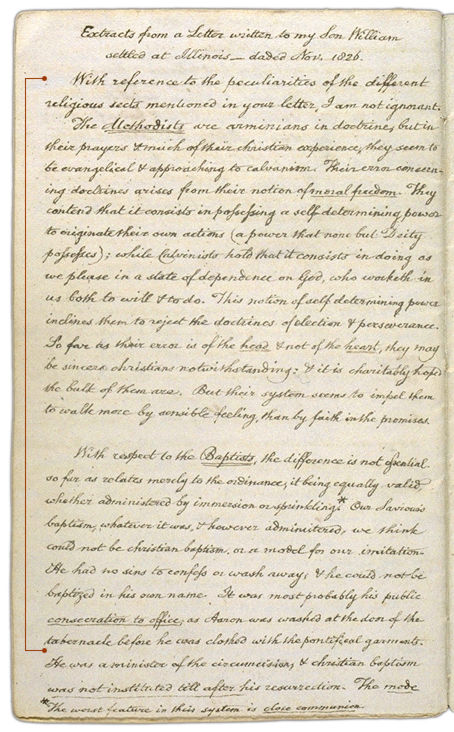 Extracts from a Letter written to my Son William
settled at Illinois — daded Nov. 1826.
With reference to the peculiarities of the different
religious sects mentioned in your letter, I am not ignorant.
The Methodists are arminians in doctrine, but in
their prayers & much of their christian experience, they seem to
be evangelical & approaching to calvanism. Their error concern-
ing doctrines arises from their notion of moral freedom. They
contend that it consists in possessing a self determining power
to originate their own actions (a power that none but Deity
possesses); while Calvinists hold that it consists in doing as
we please in a state of dependence on God, who worketh in
us both to will & to do. This notion of self determining power
inclines them to reject the doctrines of election & perseverance.
So far as their error is of the head & not of the heart, they may
be sincere christians notwithstanding: & it is charitably hoped
the bulk of them are. But their system seems to impel them
to walk more by sensible feeling, than by faith in the promises.
With respect to the Baptists, the difference is not essential
so far as relates merely to the ordinance, it being equally valid
whether administered by immersion or sprinkling.* Our Saviour's
baptism, whatever it was, & however administered, we think
could not be christian baptism, or a model for our imitation.
He had no sins to confess or wash away; & he could not be
baptized in his own name. It was most probably his public
consecration to office, as Aaron was washed at the door of the
tabernacle before he was clothed with the pontifical garments.
He was a minister of the circumcision, & christian baptism
was not instituted till after his resurrection. The mode
*The worst feature in their system is close communion.